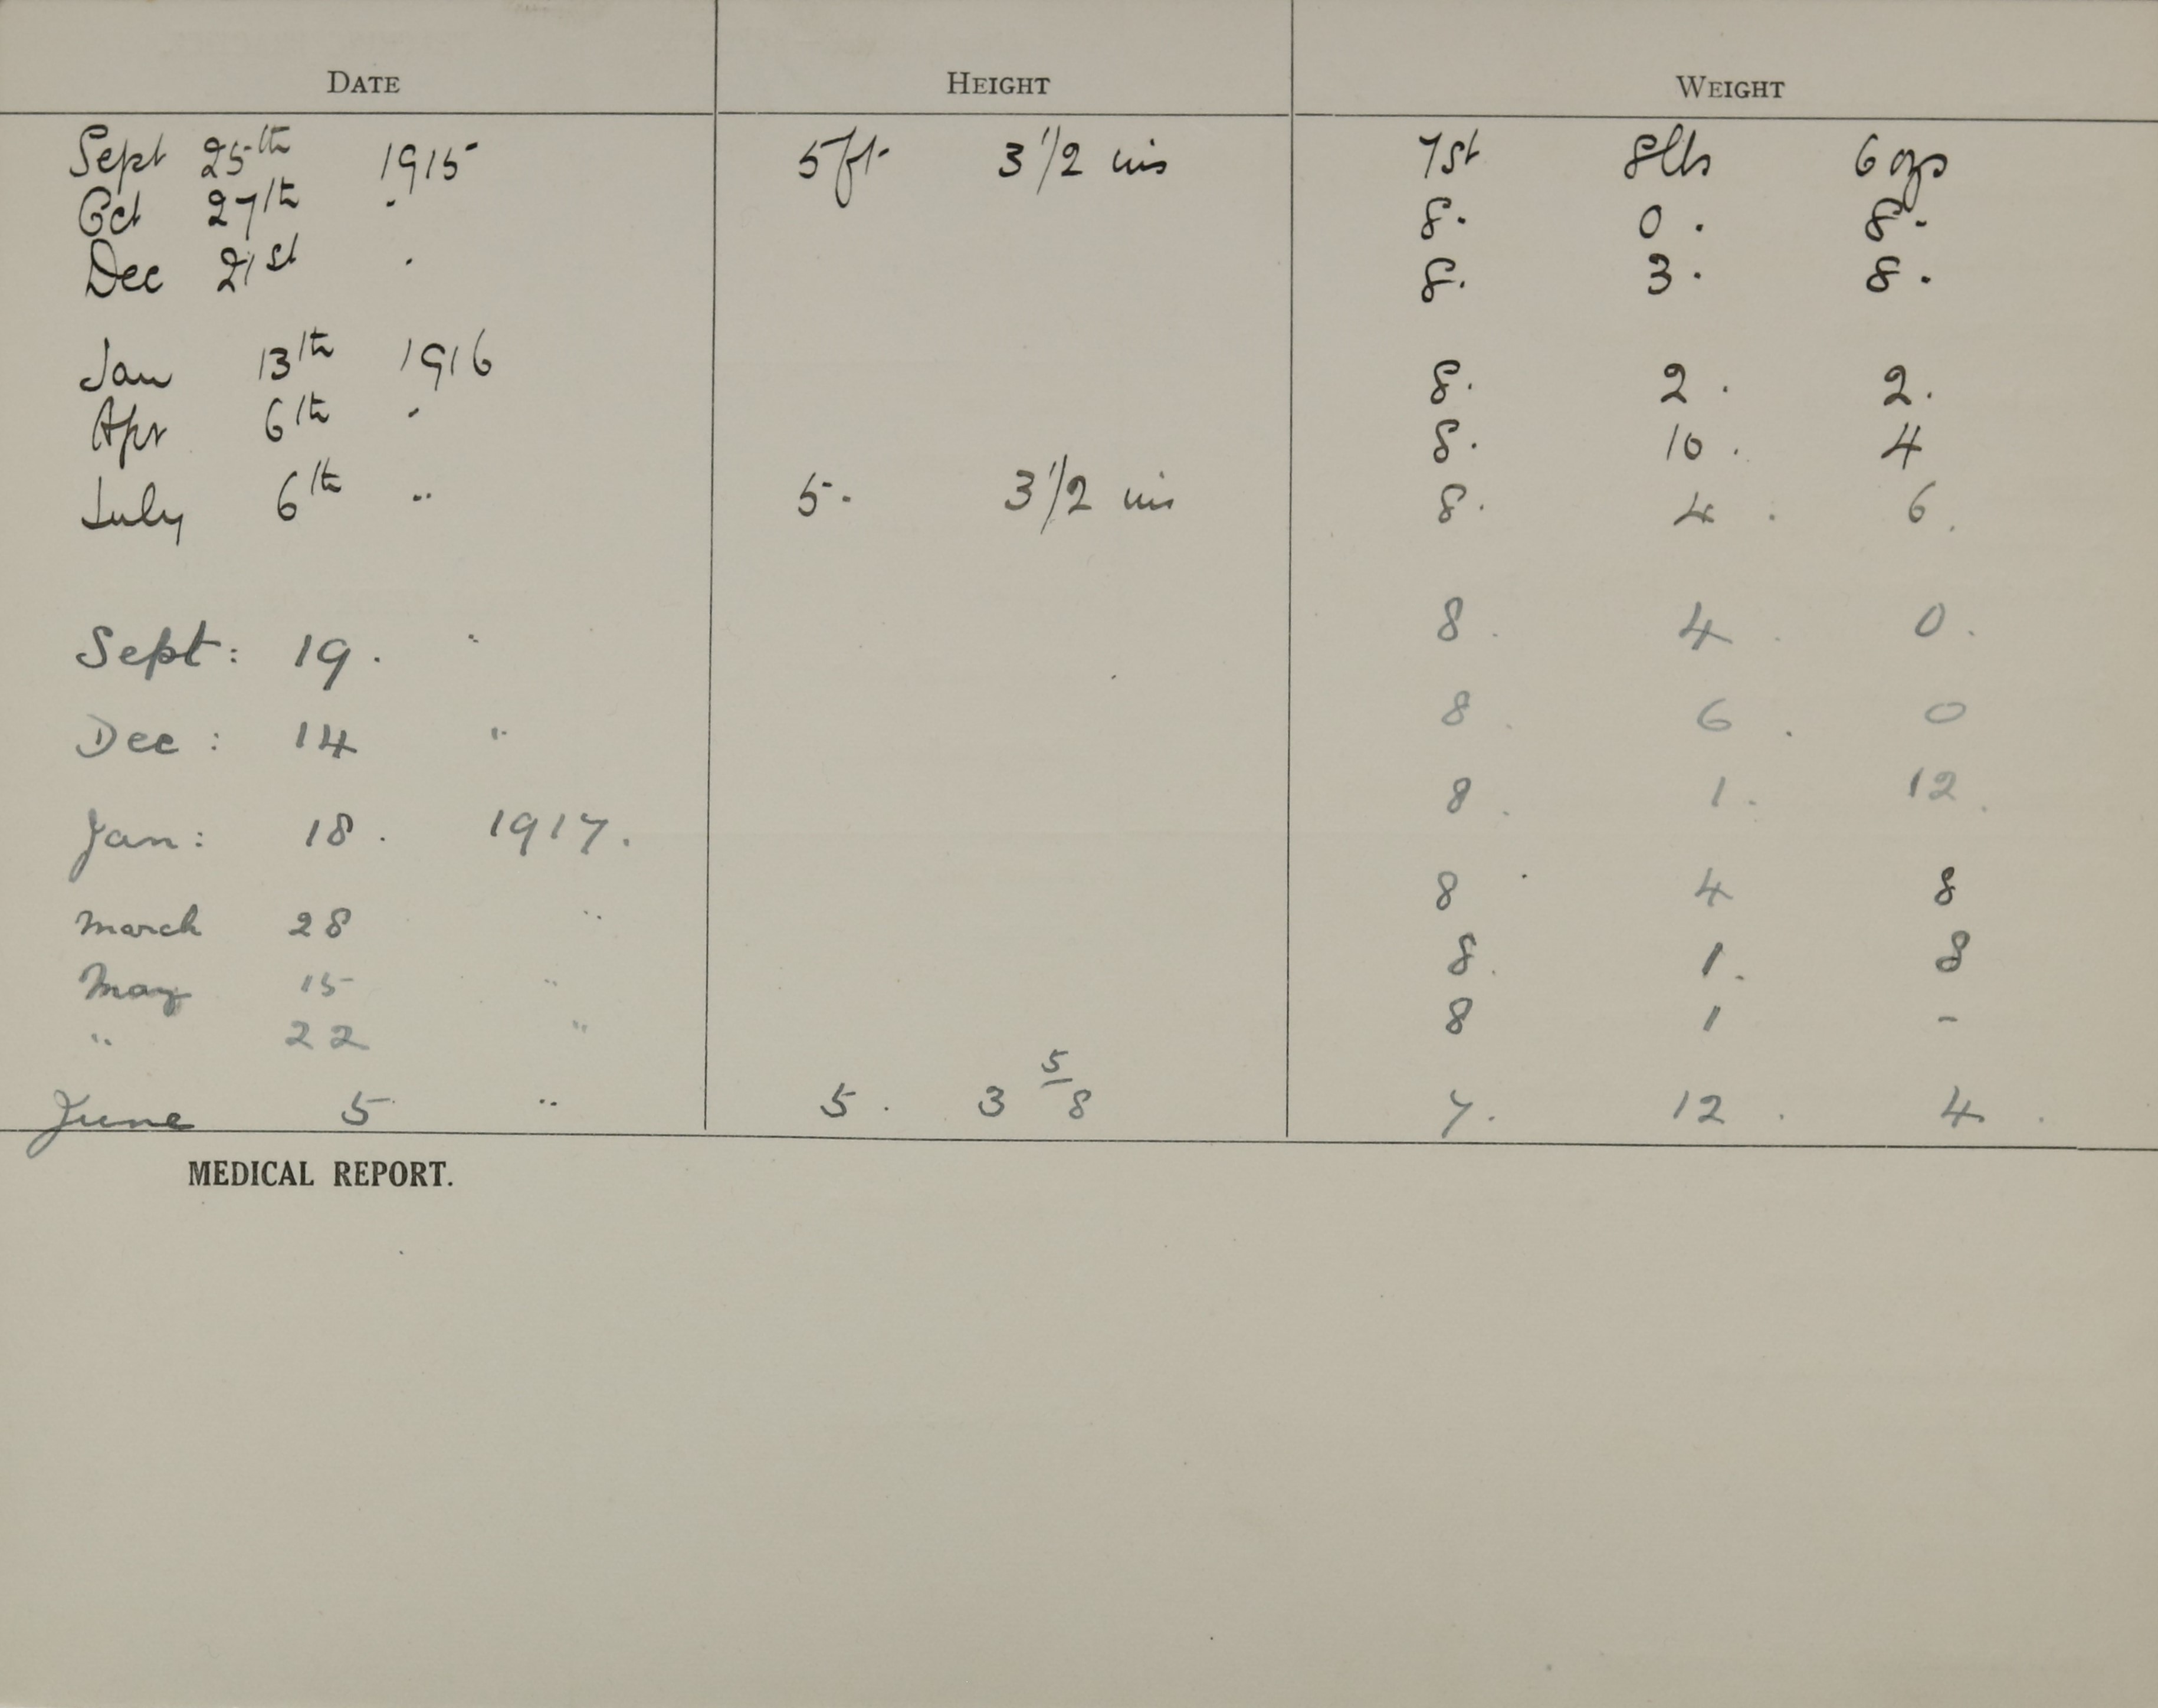 DATE HEIGHT WEIGHT
Sept 25th 1915 5ft 3 1/2 ins 7st 8lbs 6 ozs
Oct 27th " 8. 0. 8.
Dec 21st " 8. 3. 8.
Jan 13th 1916 8. 2. 2.
Apr 6th " 8. 10. 4
July 6th " 5. 3 1/2 ins 8. 4. 6.
Sept: 19. " 8. 4. 0.
Dec: 14 " 8. 6. 0
Jan: 18. 1917. 8. 1. 12.
March 28 " 8. 4 8
May 15 " 8. 1. 8
" 22 " 8 1 -
June 5 " 5. 3 5/8 7. 12. 4.
MEDICAL REPORT.